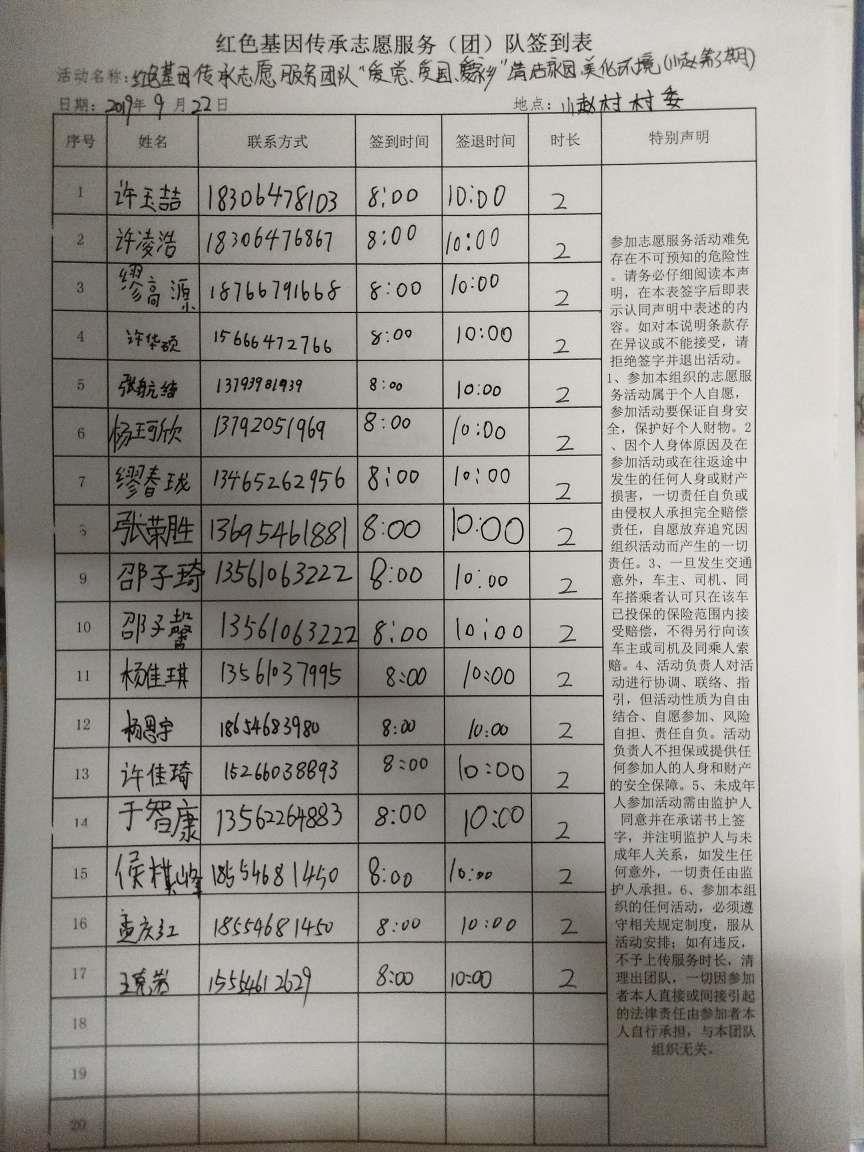 红色基因传承志愿服务（团）队签到表
活动名称：红色基因传承志愿服务团队“爱党、爱国、爱家乡”清洁家园、美化环境（小赵第3期）
日期：2019年9月22日 地点：小赵村村委
序号 姓名 联系方式 签到时间 签退时间 时长 特别声明
1 许玉喆 18306478103 8:00 10:00 2
2 许凌浩 18306476867 8:00 10:00 2
3 缪高源 18766791668 8:00 10:00 2
4 许华硕 15666472766 8:00 10:00 2
5 张航绪 13793981939 8:00 10:00 2
6 杨珂欣 13792051969 8:00 10:00 2
7 缪春珑 13465262956 8:00 10:00 2
8 张荣胜 13695461881 8:00 10:00 2
9 邵子琦 13561063222 8:00 10:00 2
10 邵子馨 13561063222 8:00 10:00 2
11 杨佳琪 13561037995 8:00 10:00 2
12 杨思宇 18654683980 8:00 10:00 2
13 许佳琦 15266038893 8:00 10:00 2
14 于智康 13562264883 8:00 10:00 2
15 侯棋峰 18554681450 8:00 10:00 2
16 孟庆红 18554681450 8:00 10:00 2
17 王克岩 15554612629 8:00 10:00 2
18
19
20
参加志愿服务活动难免
存在不可预知的危险性
。请务必仔细阅读本声
明，在本表签字后即表
示认同声明中表述的内
容。如对本说明条款存
在异议或不能接受，请
拒绝签字并退出活动。
1、参加本组织的志愿服
务活动属于个人自愿，
参加活动要保证自身安
全，保护好个人财物。2
、因个人身体原因及在
参加活动或在往返途中
发生的任何人身或财产
损害，一切责任自负或
由侵权人承担完全赔偿
责任，自愿放弃追究因
组织活动而产生的一切
责任。3、一旦发生交通
意外，车主、司机、同
车搭乘者认可只在该车
已投保的保险范围内接
受赔偿，不得另行向该
车主或司机及同乘人索
赔。4、活动负责人对活
动进行协调、联络、指
引，但活动性质为自由
结合、自愿参加、风险
自担、责任自负。活动
负责人不担保或提供任
何参加人的人身和财产
的安全保障。5、未成年
人参加活动需由监护人
同意并在承诺书上签
字，并注明监护人与未
成年人关系，如发生任
何意外，一切责任由监
护人承担。6、参加本组
织的任何活动，必须遵
守相关规定制度，服从
活动安排；如有违反，
不予上传服务时长，清
理出团队，一切因参加
者本人直接或间接引起
的法律责任由参加者本
人自行承担，与本团队
组织无关。